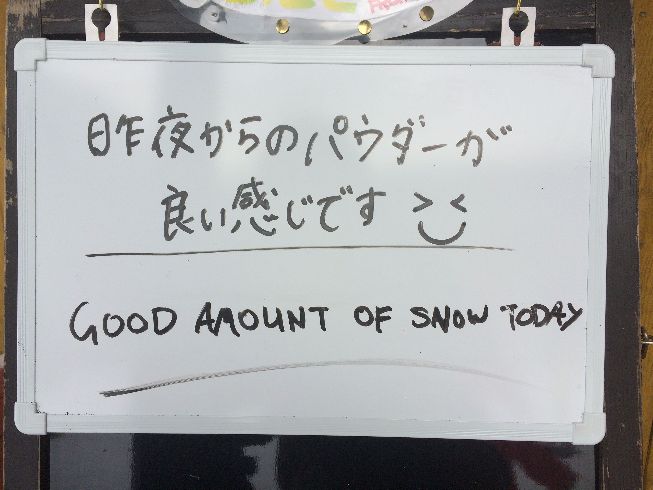 昨夜からのパウダーが
良い感じです ><
GOOD AMOUNT OF SNOW TODAY